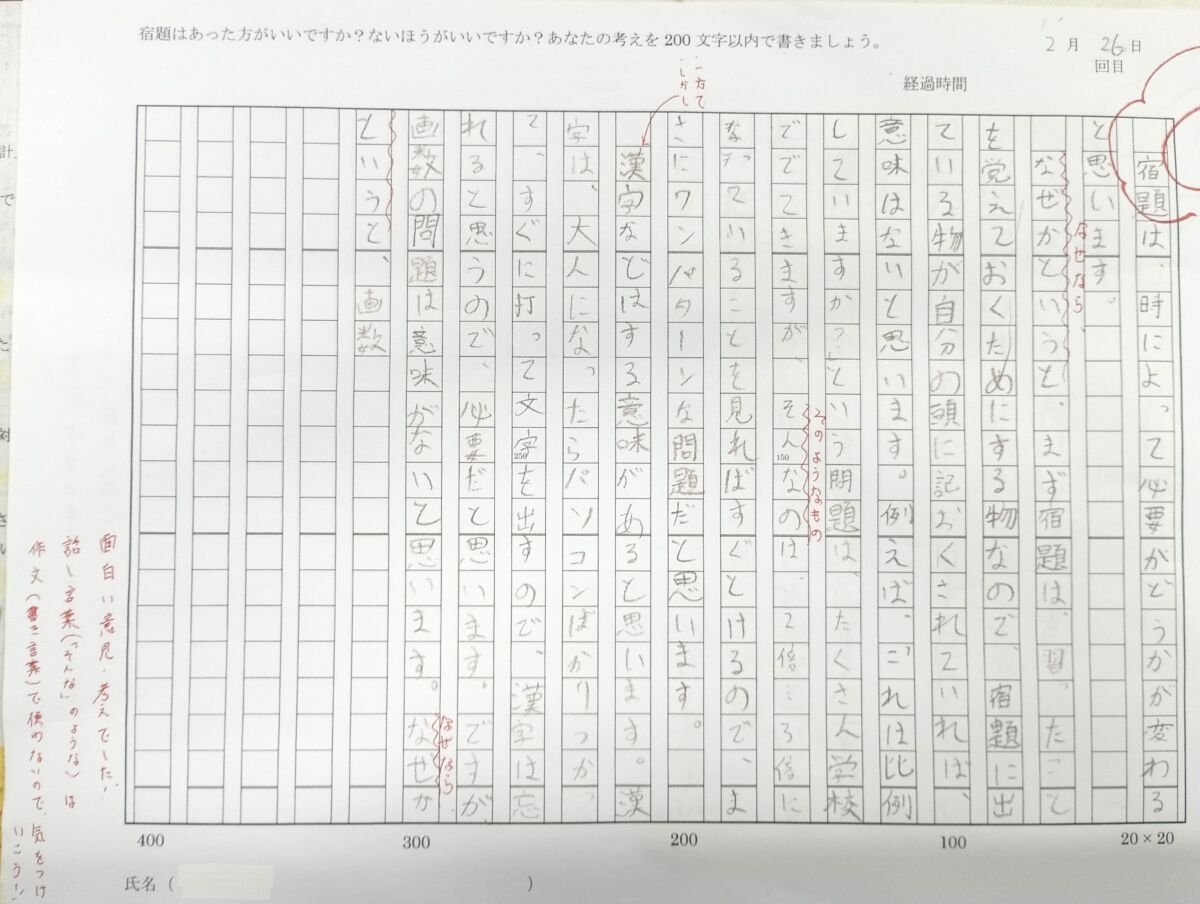 宿題はあった方がいいですか？ないほうがいいですか？あなたの考えを200文字以内で書きましょう。
2月 26日
回目
経過時間
宿題は、時によって必要かどうかが変わる
と思います。
なぜかというと、まず宿題は、習ったこと
なぜなら、
を覚えておくためにする物なので、宿題に出
ている物が自分の頭に記おくされていれば、
意味はないと思います。例えば、「これは比例
していますか？」という問題は、たくさん学校
そのようなもの
ででてきますが、そんなのは、2倍…3倍に
なっていることを見ればすぐとけるので、ま
さにワンパターンな問題だと思います。
一方で
しかし
漢字などはする意味があると思います。漢
字は、大人になったらパソコンばかりつかっ
て、すぐに打って文字を出すので、漢字は忘
れると思うので、必要だと思います。ですが、
画数の問題は意味がないと思います。なぜか
なぜなら
というと、画数
面白い意見・考えでした！
話し言葉（「そんな」のような）は
作文（書き言葉）で使わないので、気をつけ
いこう！
20×20
100
150
200
250
300
400
氏名（ ）
計
で
た
対
さ
い